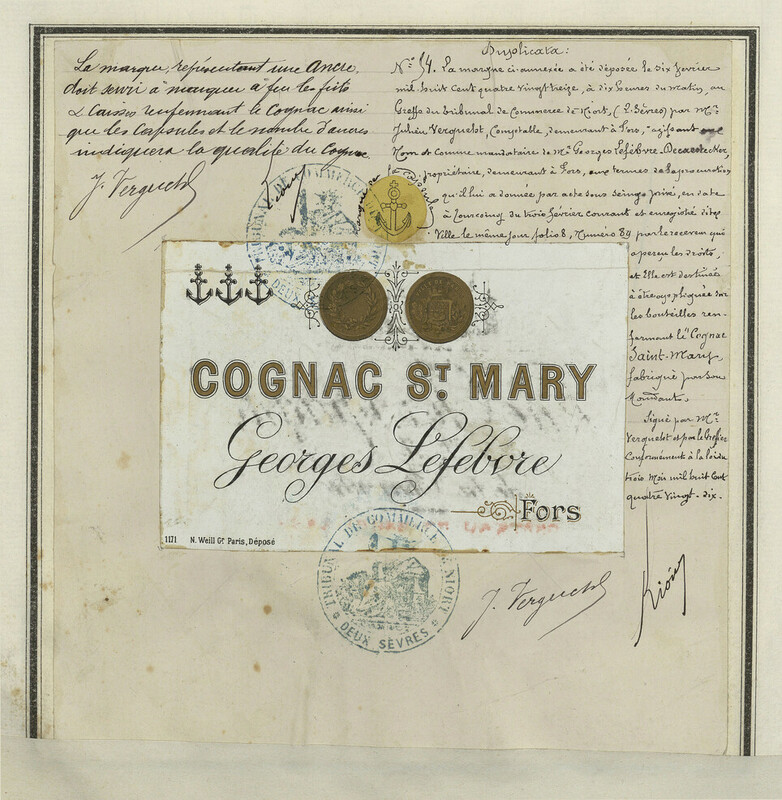 La marque, représentant une Ancre,
doit servir à marquer à feu les fûts
& Caisses renfermant le Cognac ainsi
que les Capsules et le nombre d'ancres
indiquera la qualité du Cognac
J. Verguetot
Duplicata:
N° 54. La marque ci-annexée a été déposée le dix février
mil huit cent quatre vingt treize, à dix heures du matin, au
Greffe du tribunal de Commerce de Niort, (2. Sèvres) par Mr
Julien Verguetot, Comptable, demeurant à Fors, "agissant au
Nom et comme mandataire de Mr Georges Lefèbvre-
propriétaire, demeurant à Fors, aux termes de la procuration
qu'il lui a donnée par acte sous seings privé, en date
à Tourcoing du trois février courant et enregistré dite
Ville le même jour folio 8, Numéro 89 par le receveur qui
a perçu les droits,
et Elle est destinée
à être appliquée sur
les bouteilles ren-
fermant le Cognac
Saint-Mary,
fabriqué par son
Mandant.
Signé par Mr
Verguetot et par le Greffier
Conformément à la loi du
trois Mai mil huit Cent
quatre vingt-dix.
TRIBUNAL DE COMMERCE
COGNAC ST. MARY
Georges Lefebvre
Fors
1171 N. Weill Gr Paris, Déposé
TRIBUNAL DE COMMERCE NIORT
* DEUX SÈVRES *
J. Verguetot